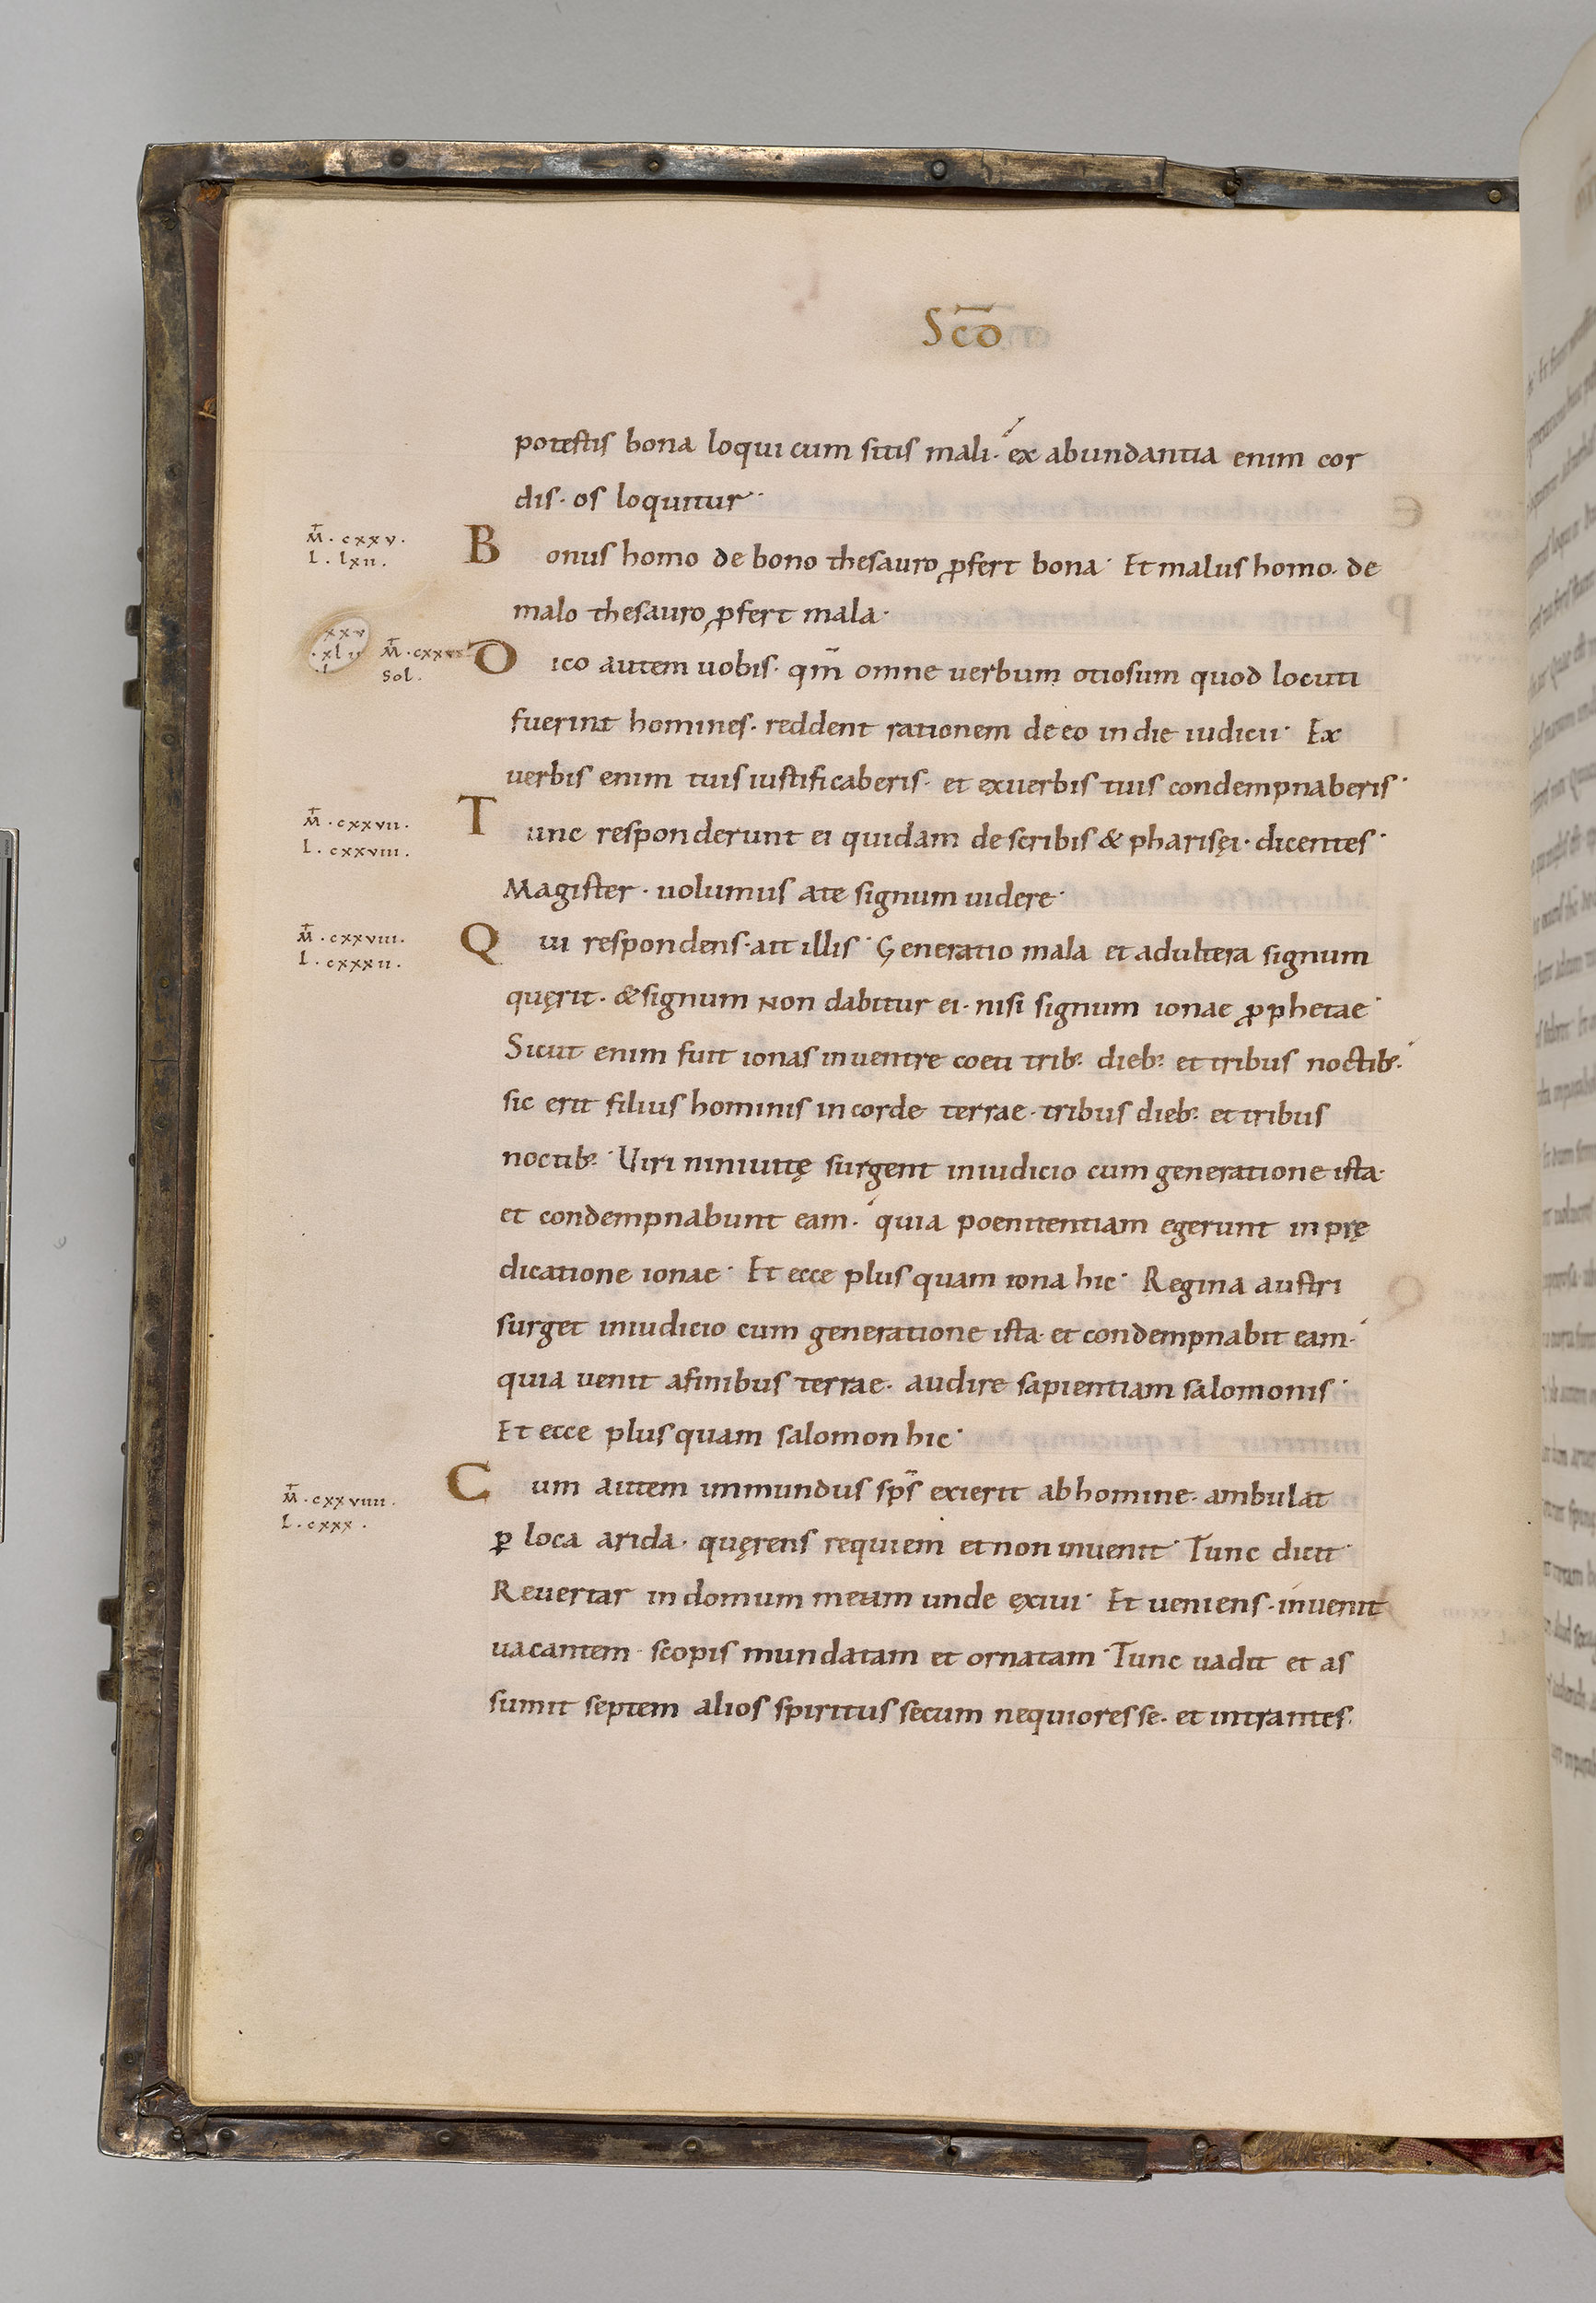 Scō
potestis bona loqui cum sitis mali· ex abundantia enim cor
dis· os loquitur·
M̄·cxxv·
L·lxii·
Bonus homo de bono thesauro ꝓfert bona· Et malus homo· de
malo thesauro ꝓfert mala·
M̄·cxxvi
Sol.
Dico autem uobis· qm̄ omne uerbum otiosum quod locuti
fuerint homines· reddent rationem de eo in die iudicii· Ex
uerbis enim tuis iustificaberis· et ex uerbis tuis condempnaberis·
M̄·cxxvii·
L·cxxviii·
Tunc responderunt ei quidam de scribis & pharisęi· dicentes·
Magister· uolumus a te signum uidere·
M̄·cxxviii·
L·cxxxii·
Qui respondens· ait illis· Generatio mala et adultera signum
quęrit· & signum non dabitur ei· nisi signum ionae ꝓphetae·
Sicut enim fuit ionas in uentre coeti trib; dieb; et tribus noctib;
sic erit filius hominis in corde terrae· tribus dieb; et tribus
noctib;· Uiri niniuitę surgent in iudicio cum generatione ista·
et condempnabunt eam· quia poenitentiam egerunt in prę
dicatione ionae· Et ecce plus quam iona hic· Regina austri
surget in iudicio cum generatione ista· et condempnabit eam·
quia uenit a finibus terrae· audire sapientiam salomonis·
Et ecce plus quam salomon hic·
M̄·cxxviiii·
L·cxxx·
Cum autem immundus sp̄s exierit ab homine· ambulat
ꝑ loca arida· quęrens requiem et non inuenit· Tunc dicit·
Reuertar in domum meam unde ęxiui· Et ueniens· inuenit
uacantem· scopis mundatam et ornatam· Tunc uadit et as
sumit septem alios spiritus secum nequiores se· et intrantes·